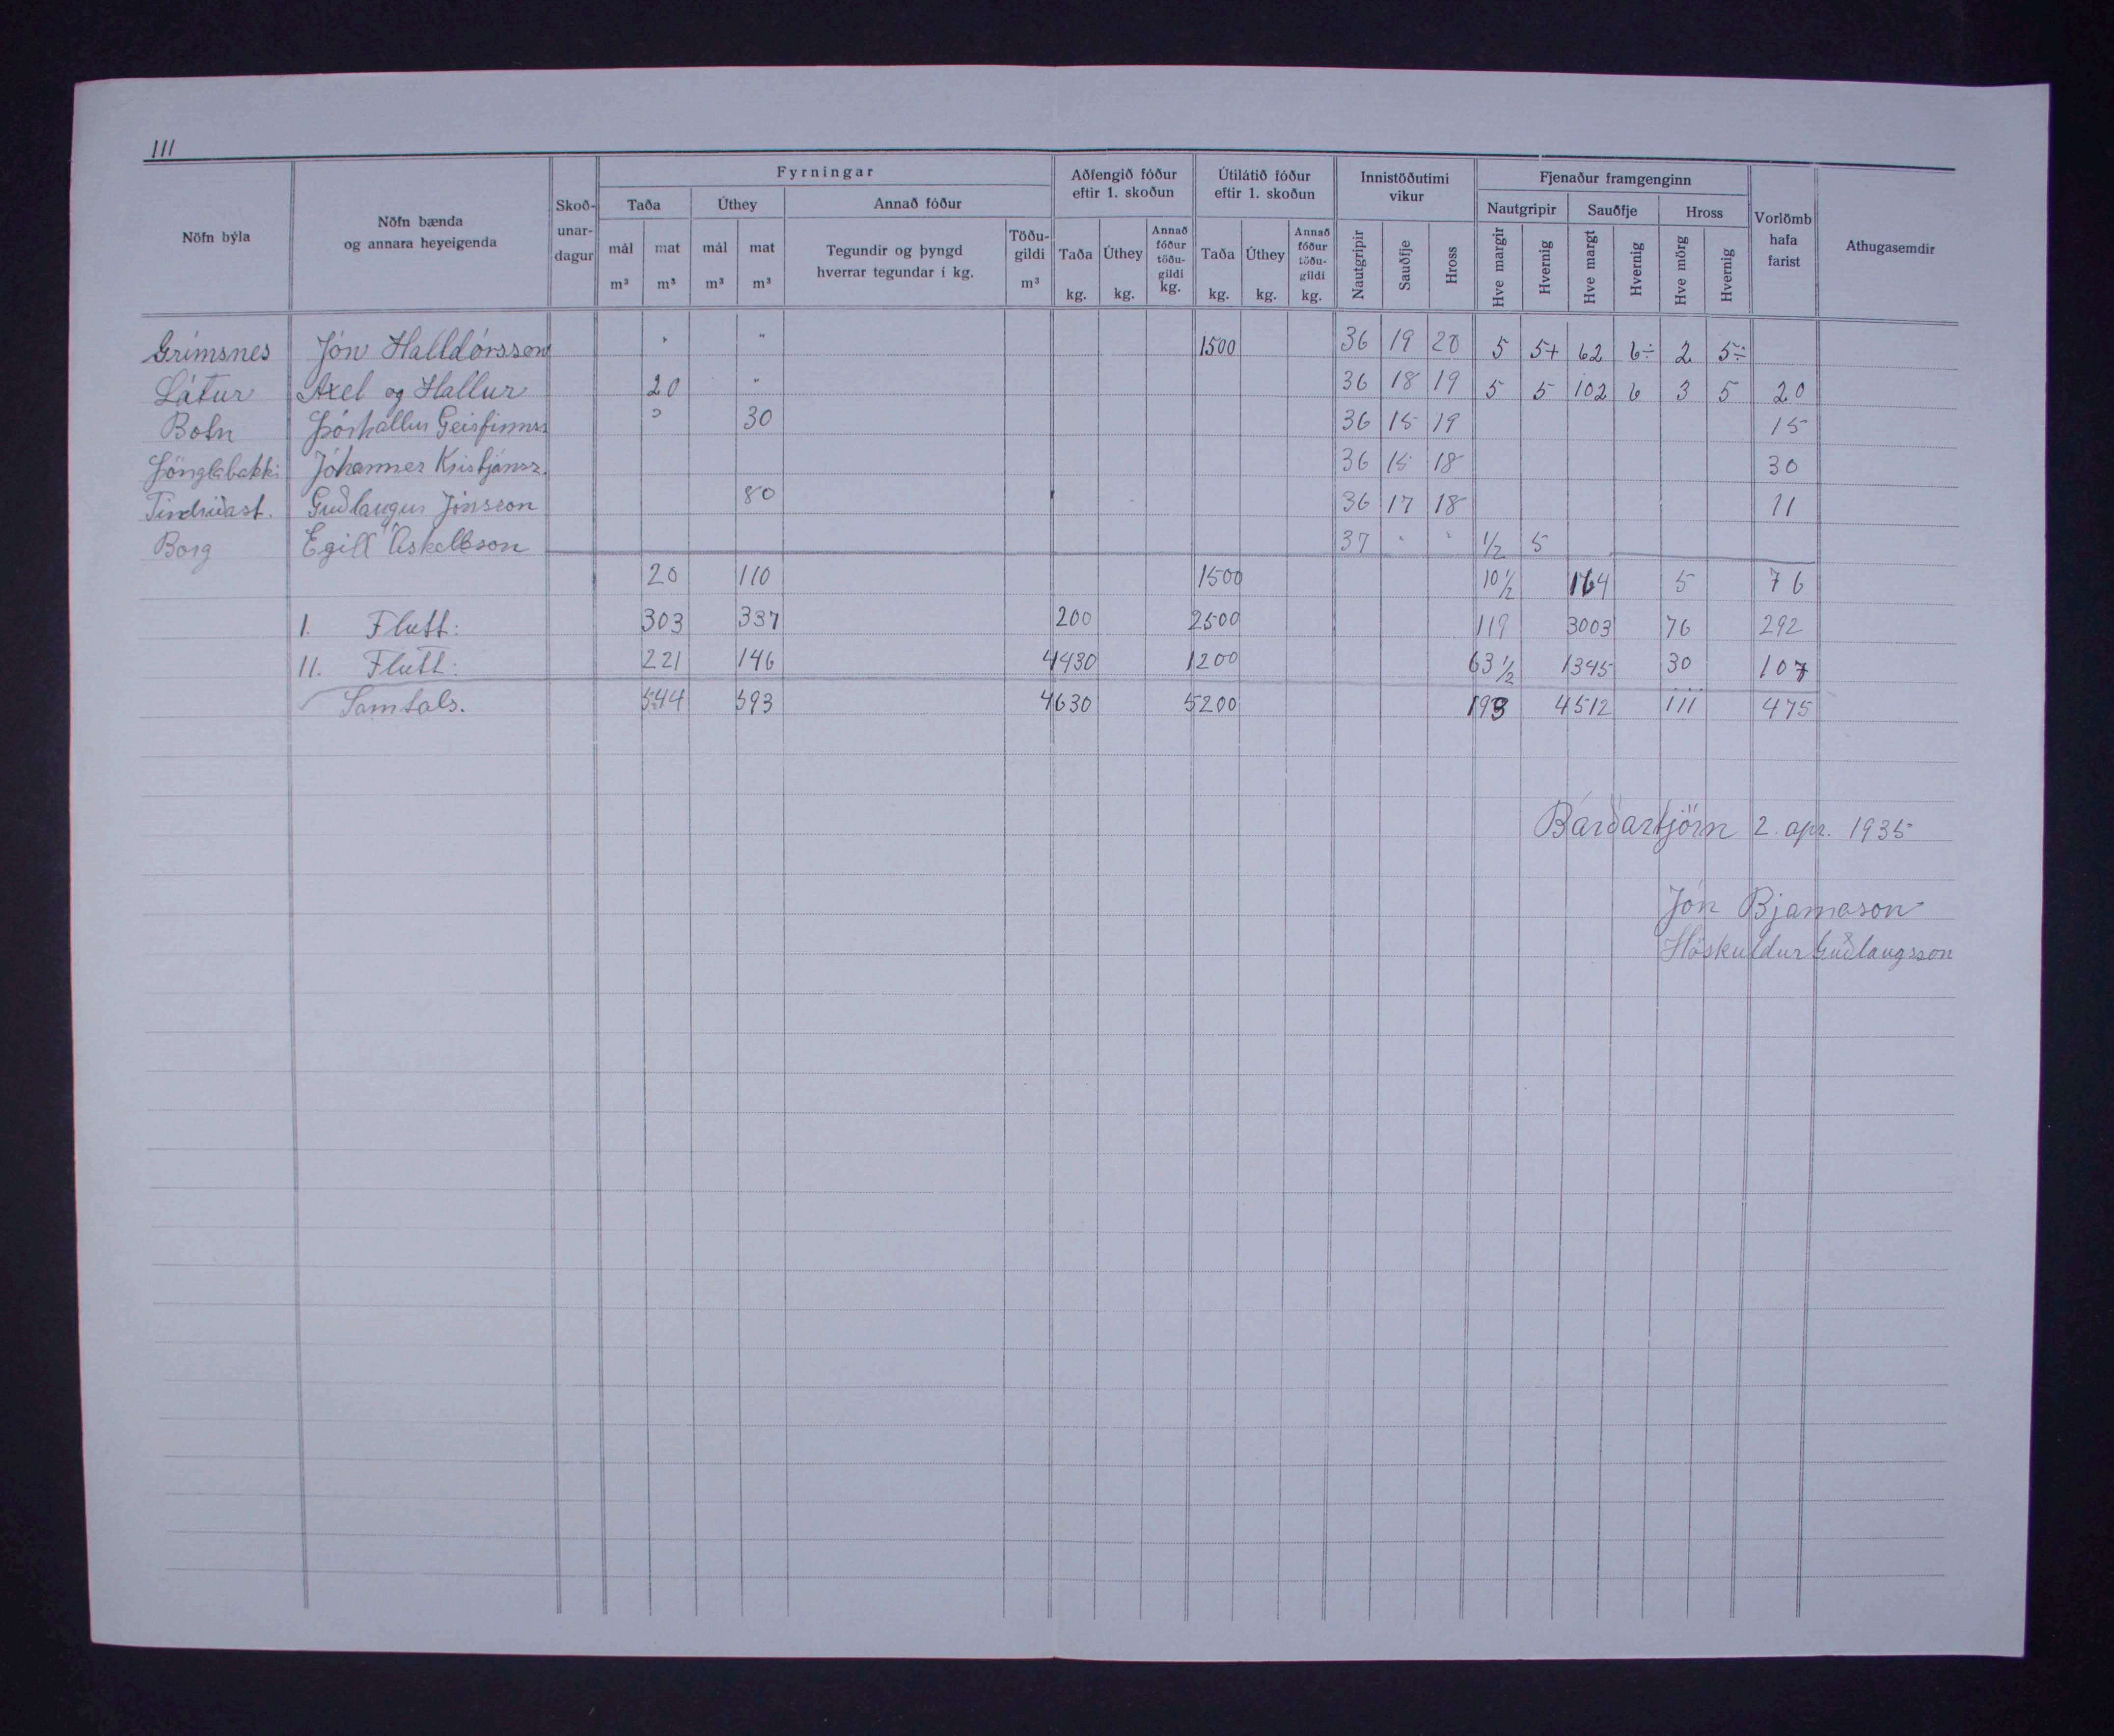 111
Fyrningar
Aðfengið fóður eftir 1. skoðun
Útilátið fóður eftir 1. skoðun
Innistöðutími vikur
Fjenaður framgenginn
Nöfn býla
Nöfn bænda og annara heyeigenda
Skoð-unar-dagur
Taða
Úthey
Annað fóður
Nautgripir
Sauðfje
Hross
Vorlömb hafa farist
Athugasemdir
mál m³
mat m³
mál m³
mat m³
Tegundir og þyngd hverrar tegundar í kg.
Töðu-gildi m³
Taða kg.
Úthey kg.
Annað fóður töðu-gildi kg.
Taða kg.
Úthey kg.
Annað fóður töðu-gildi kg.
Nautgripir
Sauðfje
Hross
Hve margir
Hvernig
Hve margt
Hvernig
Hve mörg
Hvernig
Grímsnes Jón Halldórsson " " 1500 36 19 20 5 5+ 62 6÷ 2 5÷
Látur Axel og Hallur 20 " 36 18 19 5 5 102 6 3 5 20
Botn Þórhallur Geirfinnss 30 36 15 19 15
Þönglabakki Jóhannes Kristjánss. 36 15 18 30
Tindriðast. Guðlaugur Jónsson 80 36 17 18 11
Borg Egill Áskelsson 37 " " 1/2 5
20 110 1500 10 1/2 164 5 76
I. Flutt: 303 337 200 2500 119 3003 76 292
II. Flutt: 221 146 4430 1200 63 1/2 1345 30 107
Samtals. 544 593 4630 5200 193 4512 111 475
Bárðartjörn 2. apr. 1935
Jón Bjarnason
Höskuldur Guðlaugsson